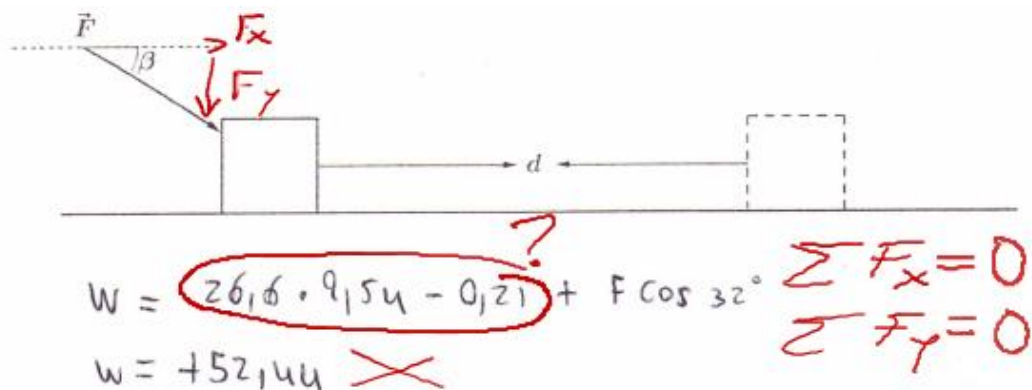 F⃗ Fx
β
Fy
d
?
W = 26,6 · 9,54 - 0,21 + F cos 32° ΣFx = 0
ΣFy = 0
w = +52,44